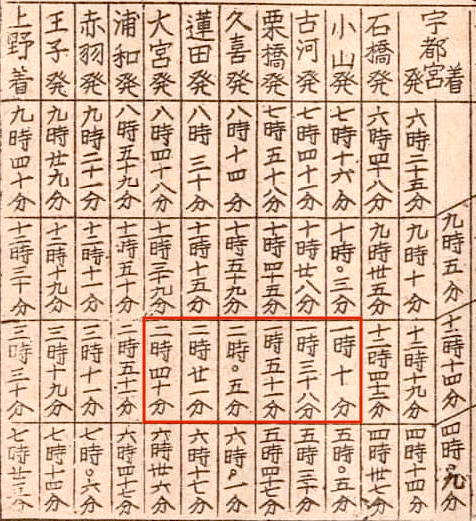 宇都宮着発
石橋発
小山発
古河発
栗橋発
久喜発
蓮田発
大宮発
浦和発
赤羽発
王子発
上野着
六時二十五分
六時四十八分
七時十六分
七時四十一分
七時五十八分
八時十四分
八時三十分
八時四十八分
八時五十九分
九時二十一分
九時廿九分
九時四十分
九時五分
九時十分
九時廿五分
十時〇三分
十時廿八分
十一時十五分
十一時三十九分
十一時五十分
十二時十一分
十二時十九分
十二時三十分
十二時十四分
十二時十九分
十二時四十二分
一時十分
一時三十八分
一時五十分
二時〇五分
二時廿一分
二時四十分
二時五十一分
三時十一分
三時十九分
三時三十分
四時〇九分
四時十四分
五時〇五分
五時三十分
五時四十七分
六時〇一分
六時十七分
六時卅六分
六時四十七分
七時〇六分
七時十四分